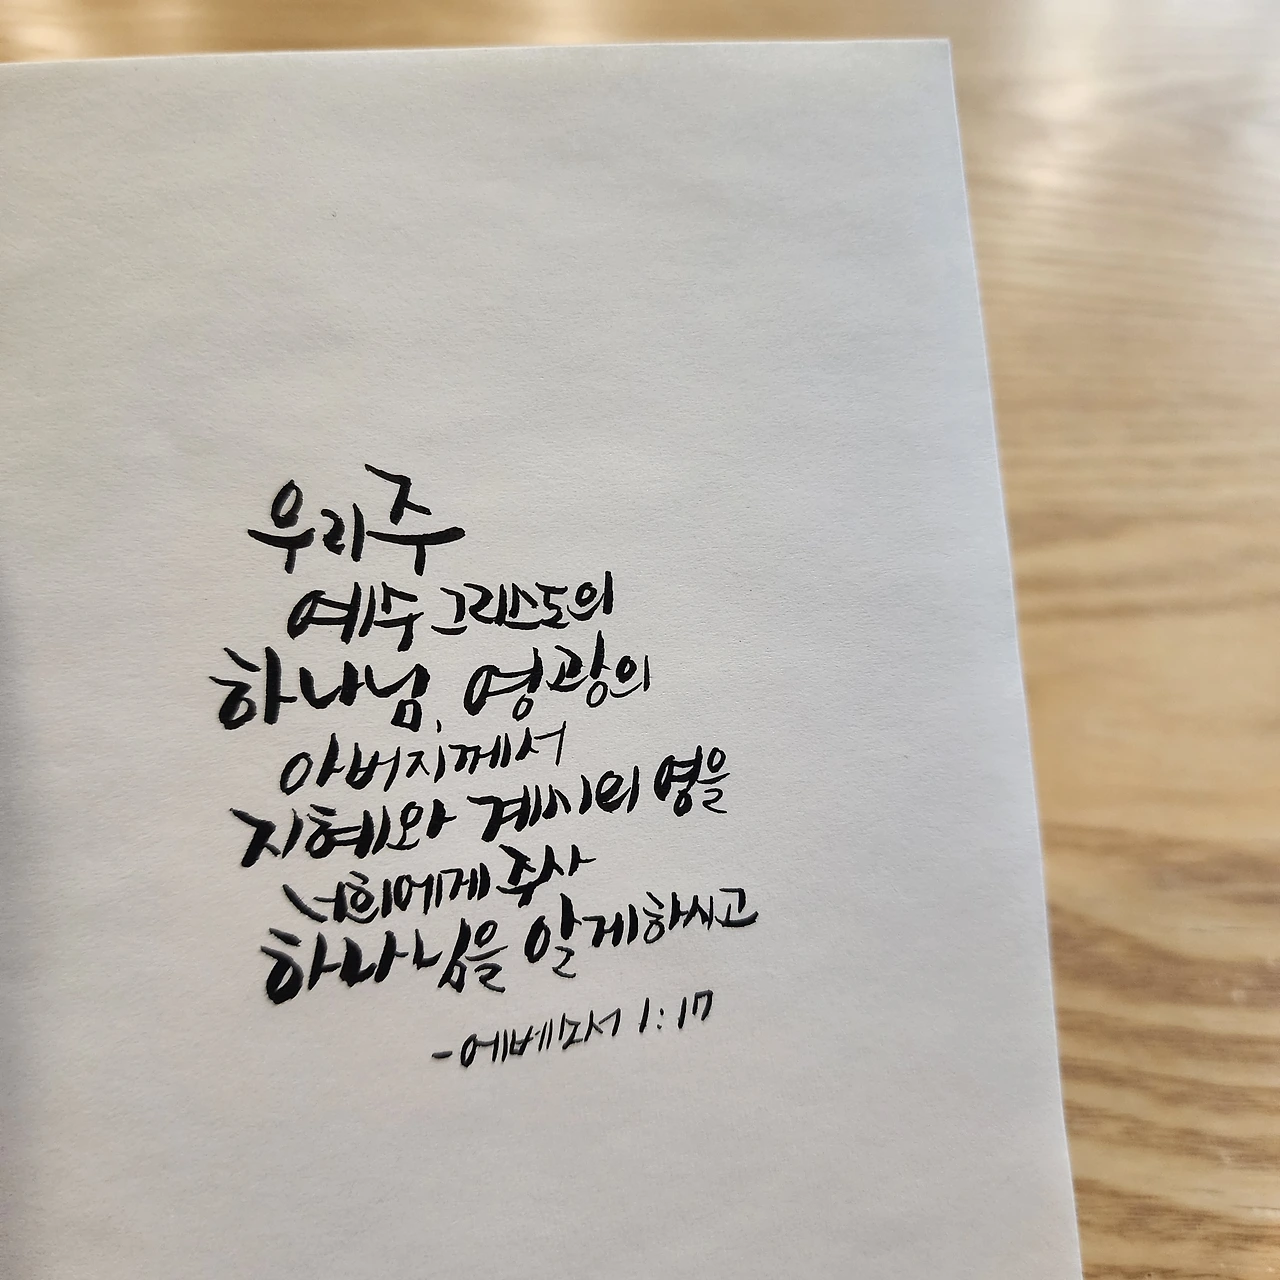 우리 주
예수 그리스도의
하나님, 영광의
아버지께서
지혜와 계시의 영을
너희에게 주사
하나님을 알게 하시고
-에베소서 1:17